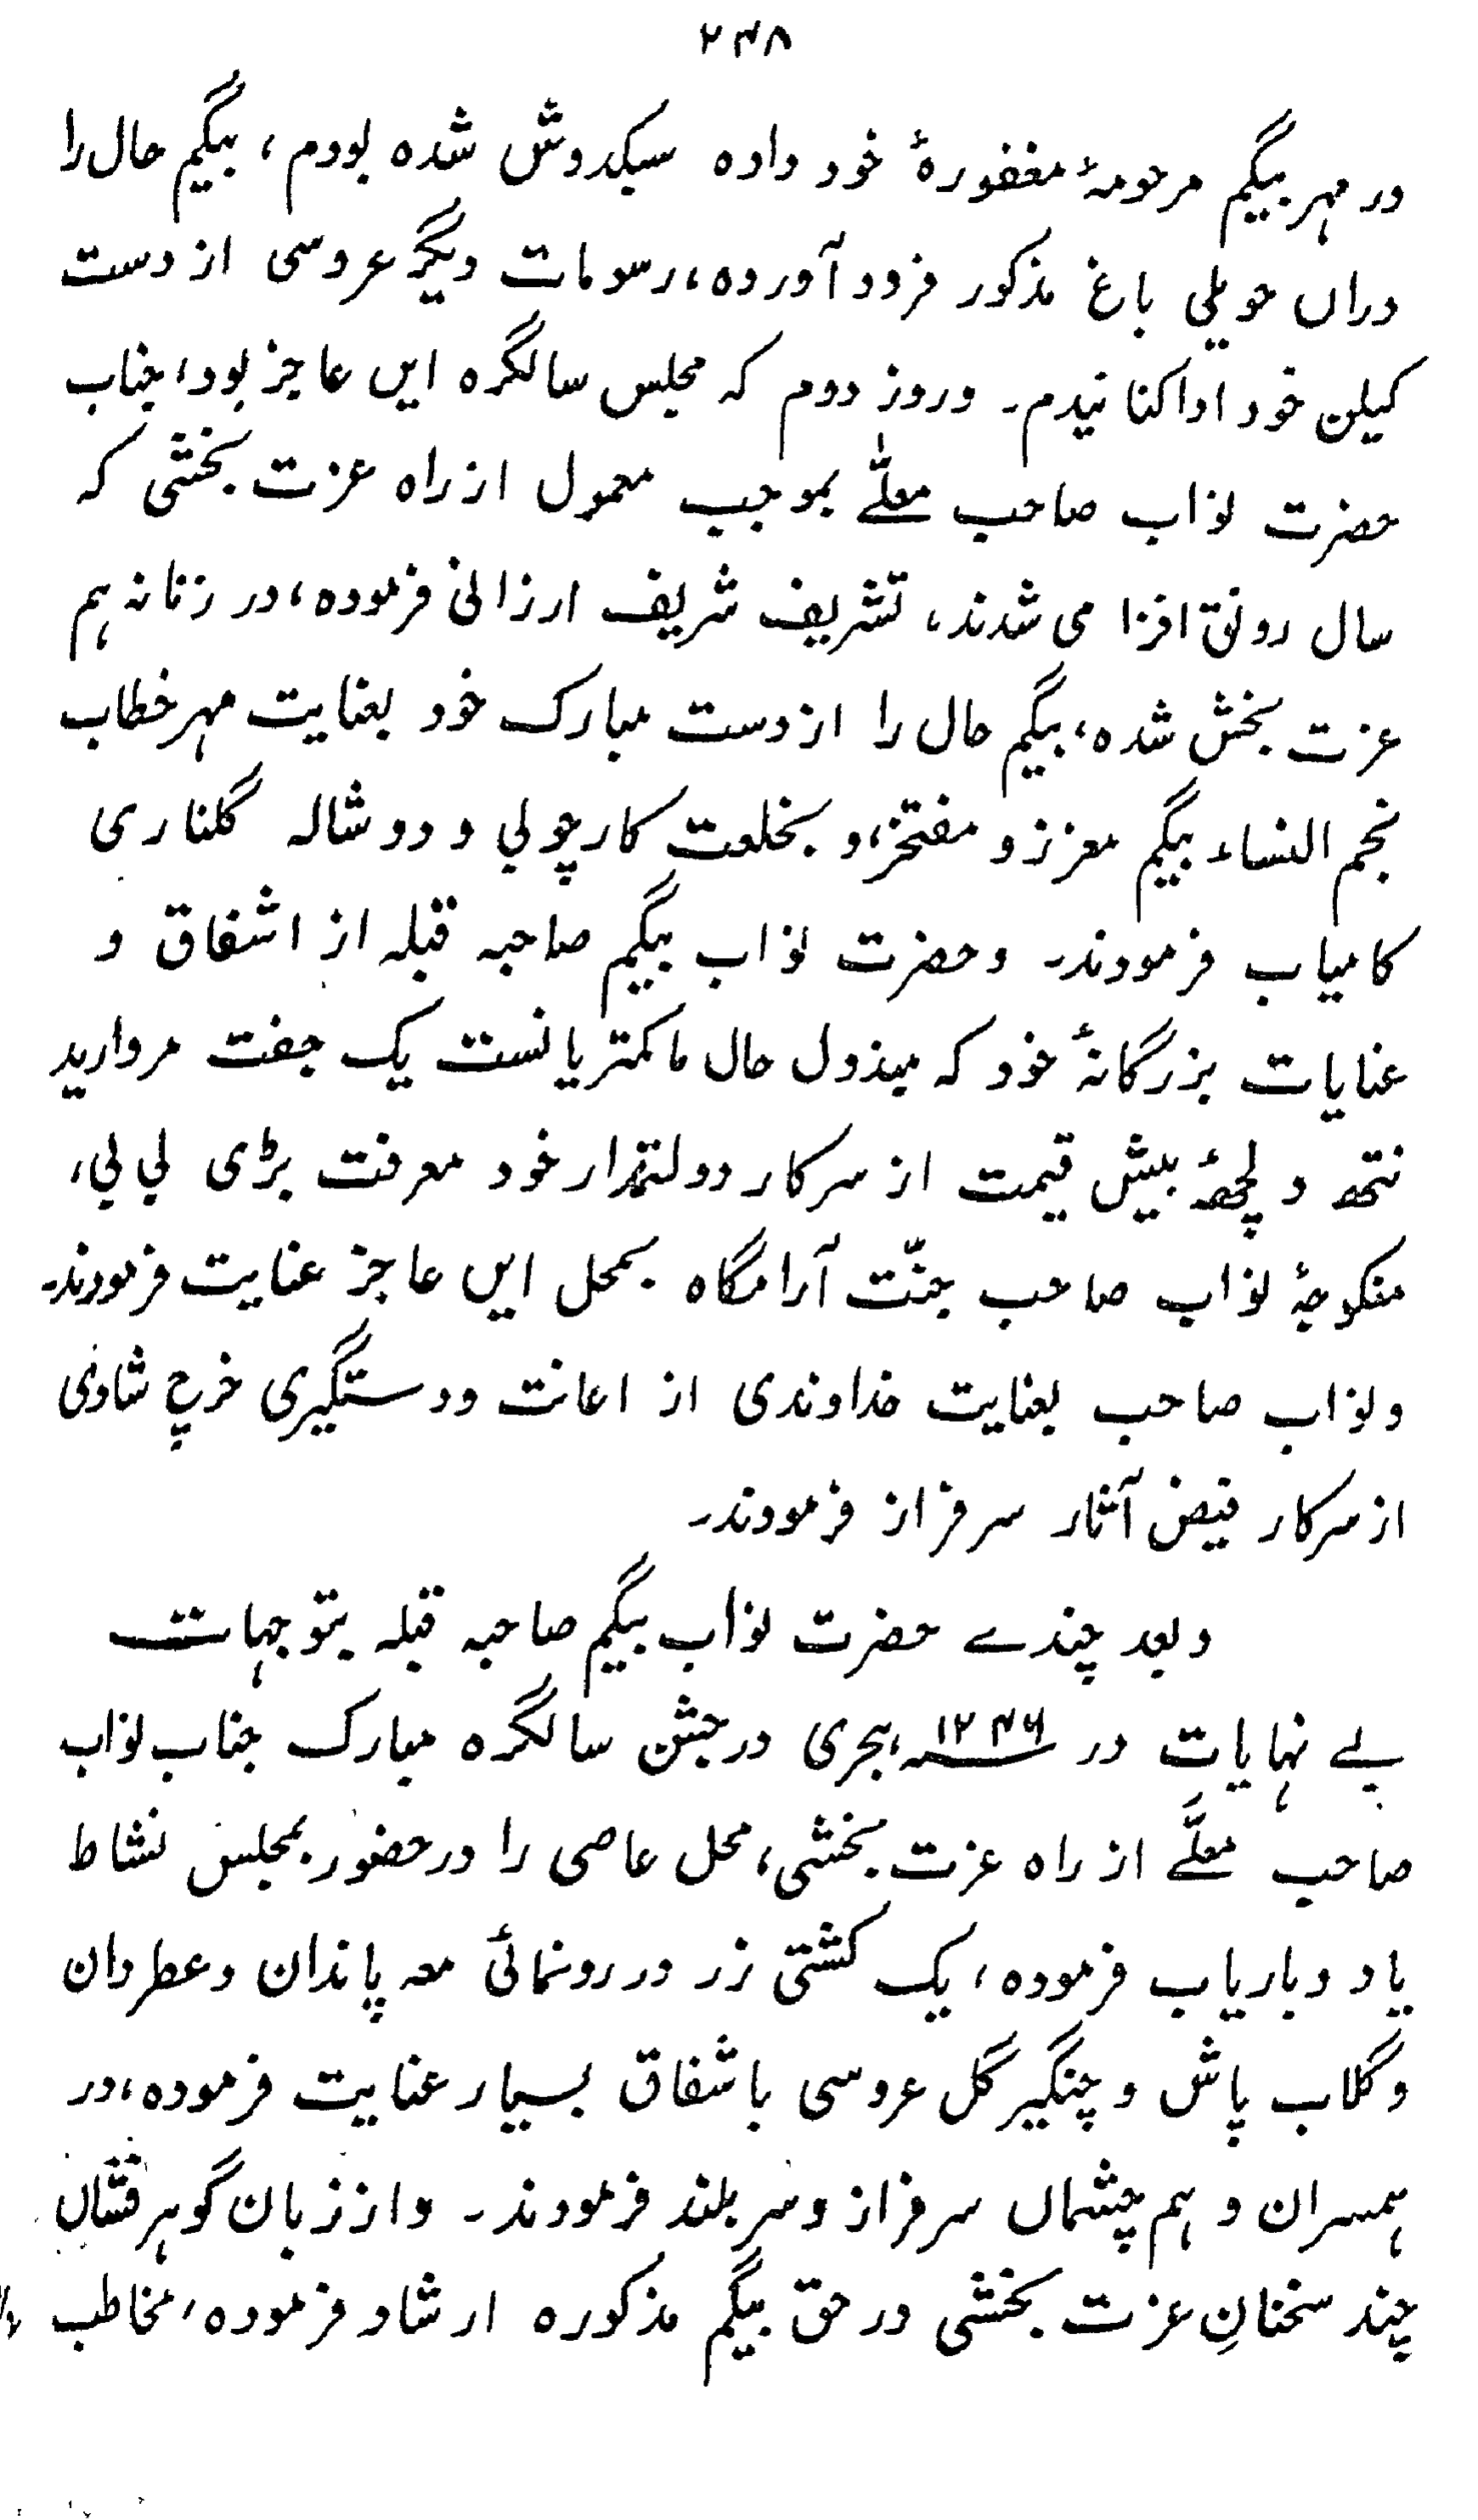 ۲۴۸
در مہر بیگم مرحومۂ مغفورۂ خود داده سبکدوش شده بودم، بیگم حال را
دراں حویلی باغ مذکور فرود آورده، رسومات دیگر عروسی از دست
کیلن خود ادا کنانیدم۔ وروز دوم کہ مجلس سالگره ایں عاجز بود، جناب
حضرت نواب صاحب معلّٰے بموجب معمول از راه عزت بخشی کہ
سال رونق افزا می شدند، تشریف شریف ارزانی فرموده، در زنانہ ہم
عزت بخش شده، بیگم حال را از دست مبارک خود بعنایت مہر خطاب
نجم النساء بیگم معزز و مفتخر، و بخلعت کارچوبی و دوشالہ گلناری
کامیاب فرمودند۔ وحضرت نواب بیگم صاحبہ قبلہ از اشفاق و
عنایات بزرگانۂ خود کہ مبذول حال ما کمتریانست یک جفت مروارید
نتھ و لچھۂ بیش قیمت از سرکار دولتمدار خود معرفت بڑی بی بی،
منکوحۂ نواب صاحب جنّت آرامگاه بمحل ایں عاجز عنایت فرمودند۔
ونواب صاحب بعنایت خداوندی از اعانت ودستگیری خرچ شادی
از سرکار فیض آثار سرفراز فرمودند۔
وبعد چندے حضرت نواب بیگم صاحبہ قبلہ بتوجہات
بے نہایات در ۱۲۴۶ ہجری در جشن سالگره مبارک جناب نواب
صاحب معلّٰے از راه عزت بخشی، محل عاصی را در حضور بمجلس نشاط
یاد و باریاب فرموده، یک کشتی زر در رونمائی معہ پاندان وعطردان
وگلاب پاش و چنگیر گل عروسی باشفاق بسیار عنایت فرموده، در
ہمسران و ہم چشماں سرفراز وسر بلند فرمودند۔ واز زبان گوہر فشاں
چند سخنانِ عزت بخشی در حق بیگم مذکوره ارشاد فرموده، مخاطب